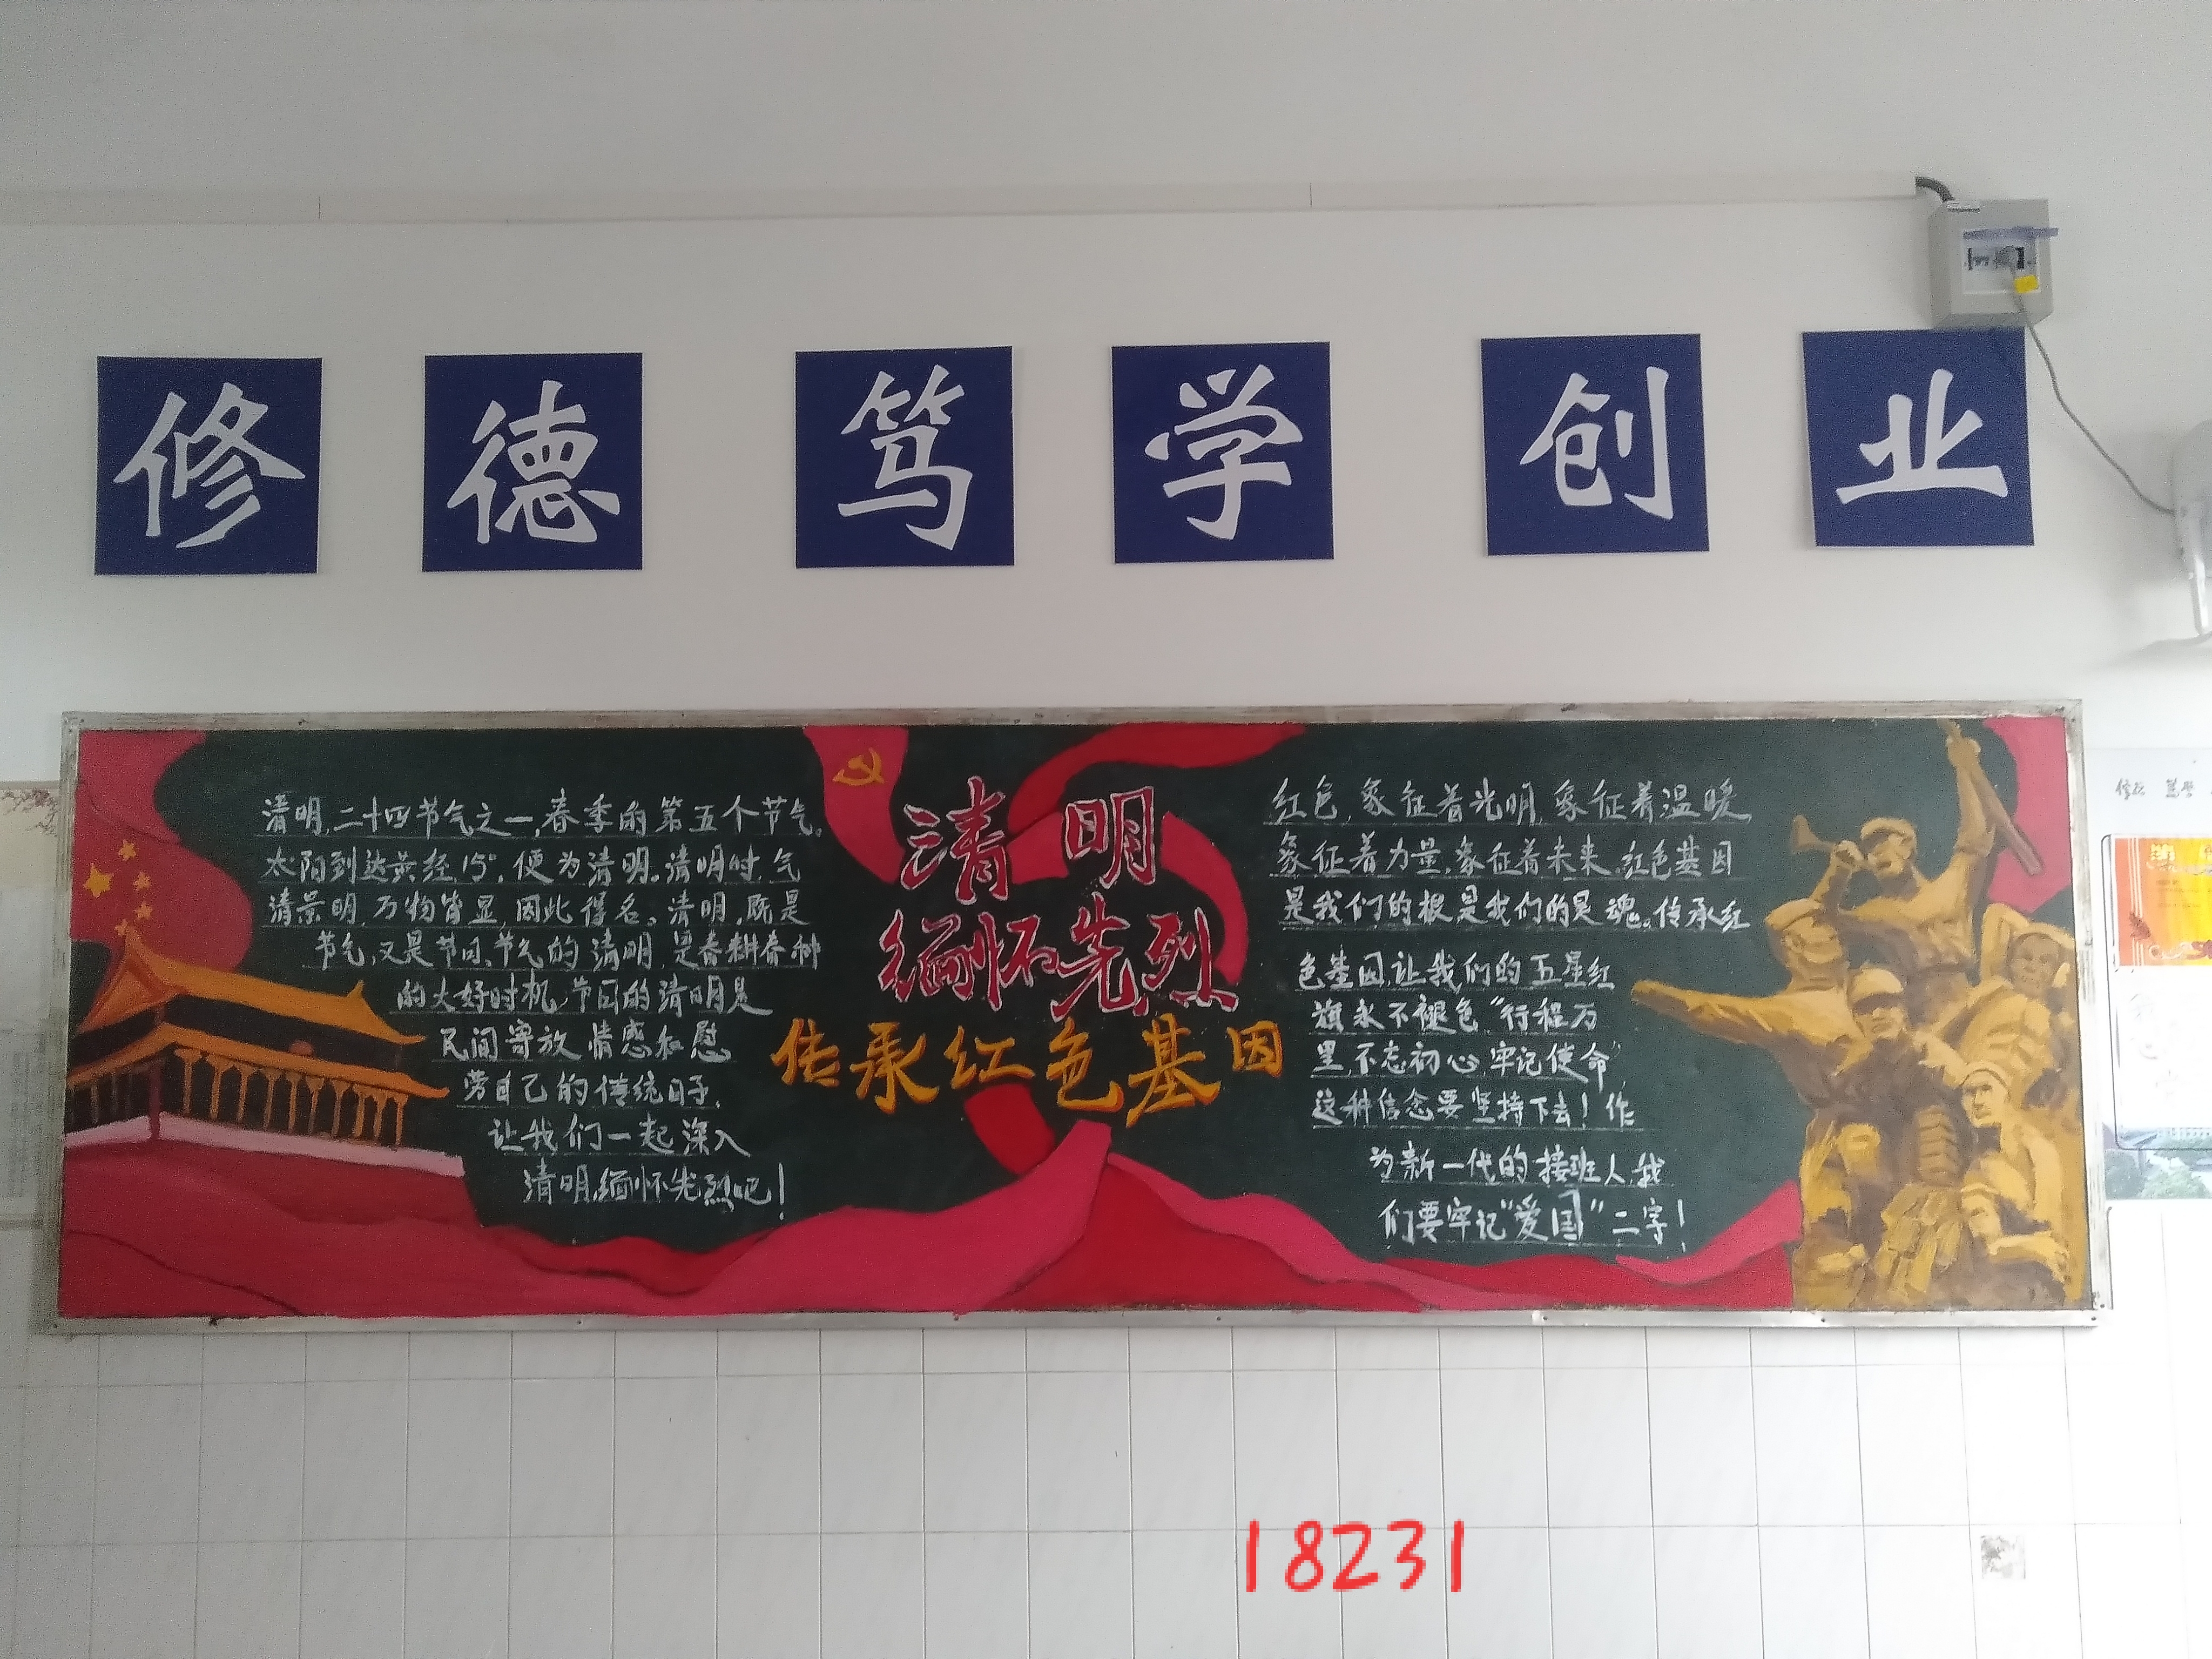 修德笃学创业
清明,二十四节气之一,春季的第五个节气。
太阳到达黄经15°,便为清明。清明时,气
清景明,万物皆显,因此得名。清明,既是
节气,又是节日,节气的清明,是春耕春种
的大好时机,节日的清明是
民间寄放情感和慰
劳自己的传统日子,
让我们一起深入
清明,缅怀先烈吧!
清明
缅怀先烈
传承红色基因
红色,象征着光明,象征着温暖
象征着力量,象征着未来。红色基因
是我们的根是我们的是魂。传承红
色基因,让我们的五星红
旗永不褪色“行程万
里,不忘初心,牢记使命”
这种信念要坚持下去!作
为新一代的接班人,我
们要牢记“爱国”二字!
18231